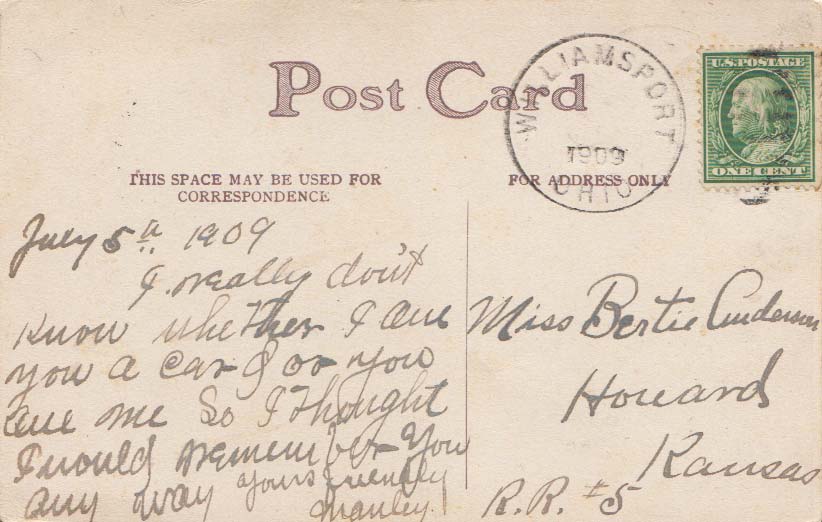 Post Card
THIS SPACE MAY BE USED FOR
CORRESPONDENCE
FOR ADDRESS ONLY
WILLIAMSPORT
1909
OHIO
U.S. POSTAGE
ONE CENT
July 5th 1909
I really don't
know whether I owe
you a card or you
owe me So I Thought
I would remember You
any way yours Friendly
Manley
Miss Bertie Anderson
Howard
Kansas
R.R. #5